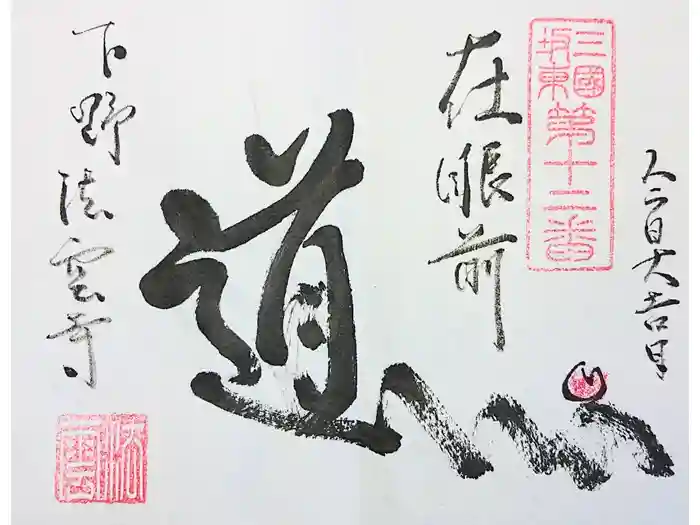 今日大吉日
三國
坂東
第十二番
在眼前
道
下野法雲寺
法雲